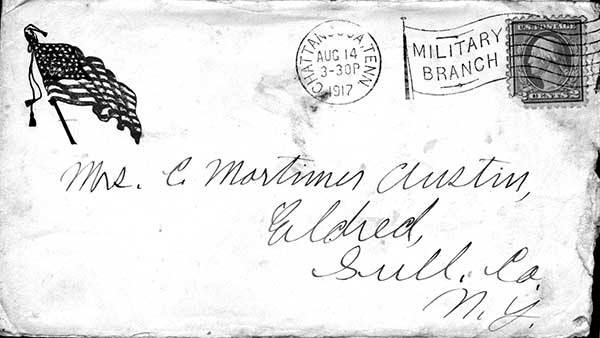 CHATTANOOGA, TENN
AUG 14
3-30P
1917
MILITARY
BRANCH
U.S. POSTAGE
CENTS
Mrs. C. Mortimer Austin,
Eldred,
Sull. Co.
N.Y.